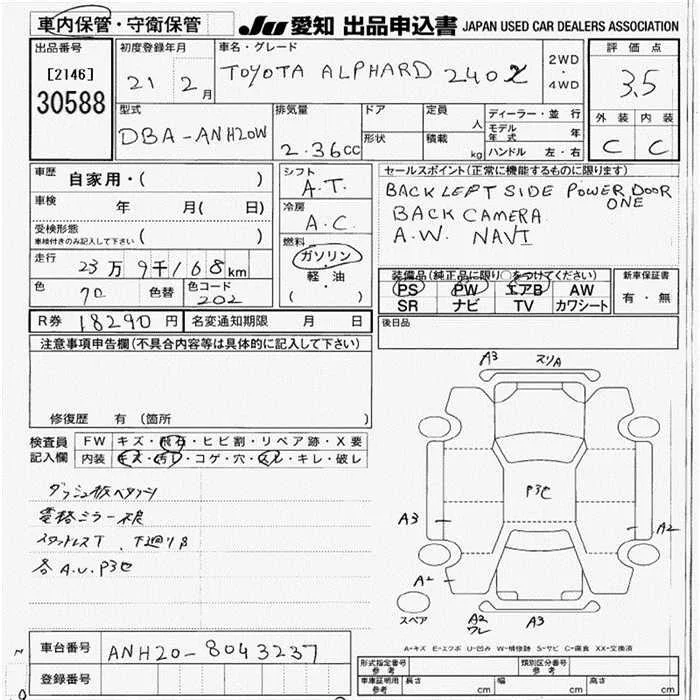 車内保管・守衛保管
JU 愛知 出品申込書 JAPAN USED CAR DEALERS ASSOCIATION
出品番号
[2146]
30588
初度登録年月
21 2月
車名・グレード
TOYOTA ALPHARD 240
2WD
・
4WD
評価点
3.5
外装 内装
C C
型式
DBA-ANH20W
排気量
2.36cc
ドア
形状
定員
人
積載
kg
ディーラー・並行
モデル年式 年
ハンドル 左・右
車歴 自家用・( )
車検 年 月( 日)
受検形態
車検付きのみ記入して下さい ( )
走行 23万9千168km
色 色替 色コード 202
シフト
A.T.
冷房
A.C.
燃料
ガソリン
・
軽・油
( )
セールスポイント(正常に機能するものに限ります)
BACK LEFT SIDE POWER DOOR
ONE
BACK CAMERA
A.W. NAVI
装備品(純正品に限り○をつけてください)
PS PW エアB AW
SR ナビ TV カワシート
新車保証書
有・無
R券 18290円 名変通知期限 月 日
後日品
注意事項申告欄(不具合内容等は具体的に記入して下さい)
修復歴 有(箇所
検査員記入欄
FW キズ・飛石・ヒビ割・リペア跡・X要
内装 キズ・汚レ・コゲ・穴・スレ・キレ・破レ
A3 スリA
A3
A2
A2
A2
ワレ
A3
スペア
A-キズ E-エクボ U-凹み W-補修跡 S-サビ C-腐食 XX-交換済
車台番号 ANH20-8043237
登録番号
形式指定番号
参考
類別区分番号
参考
車庫証明用
参考
長さ cm 幅 cm 高さ cm